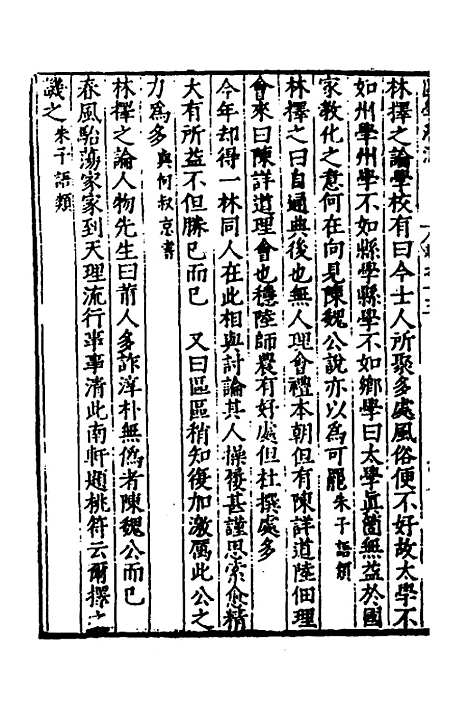 林擇之論學校有曰今士人所聚多處風俗便不好故太學不
如州學州學不如縣學縣學不如鄉學曰太學眞箇無益於國
家教化之意何在向見陳魏公說亦以爲可罷朱子語類
林擇之曰自通典後也無人理會禮本朝但有陳詳道陸佃理
會來曰陳詳道理會也穩陸師農有好處但杜撰處多
今年却得一林同人在此相與討論其人操履甚謹思索愈精
大有所益不但勝己而已 又曰區區稍知復加激厲此公之
力爲多與何叔京書
林擇之論人物先生曰莆人多詐淳朴無僞者陳魏公而已
春風駘蕩家家到天理流行事事清此南軒題桃符云爾擇之
議之朱子語類